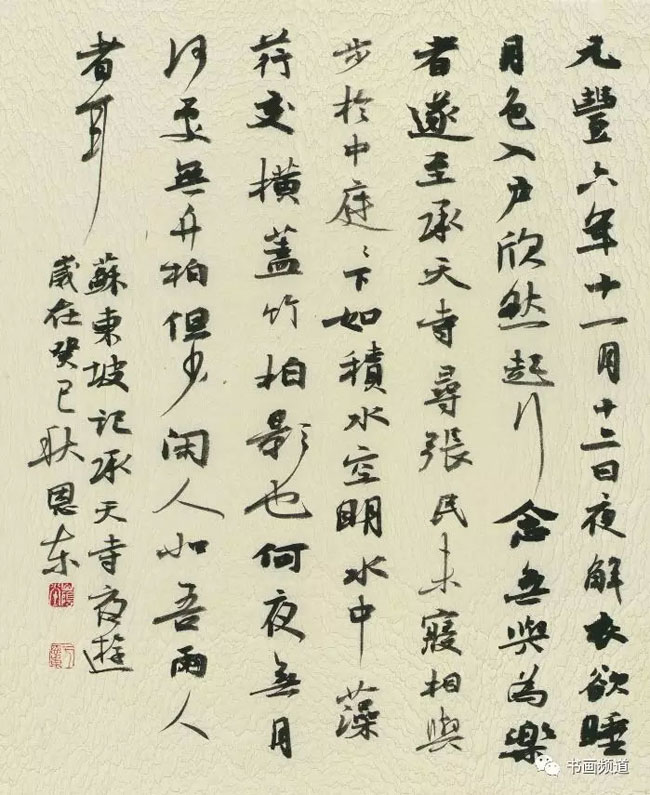 元豐六年十一月十二日夜解衣欲睡
月色入户欣然起行念無與為樂
者遂至承天寺尋張民未寢相與
步於中庭〻下如積水空明水中藻
荇交橫蓋竹柏影也何夜無月
何處無竹柏但少閑人如吾兩人
者耳
蘇東坡記承天寺夜遊
歲在癸巳耿恩东
书画频道